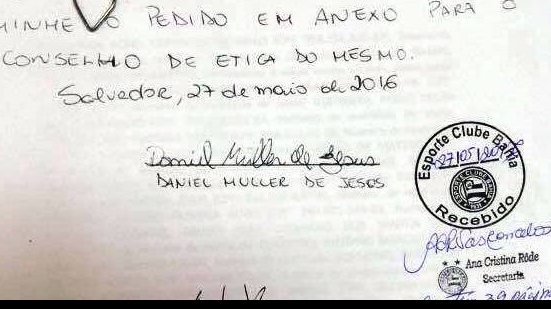 O PEDIDO EM ANEXO PARA O
CONSELHO DE ETICA DO MESMO.
Salvador, 27 de maio de 2016
Daniel Muller de Jesus
DANIEL MULLER DE JESUS
Esporte Clube Bahia
27/05/2016
Recebido
Ana Cristina Rôde
Secretaria